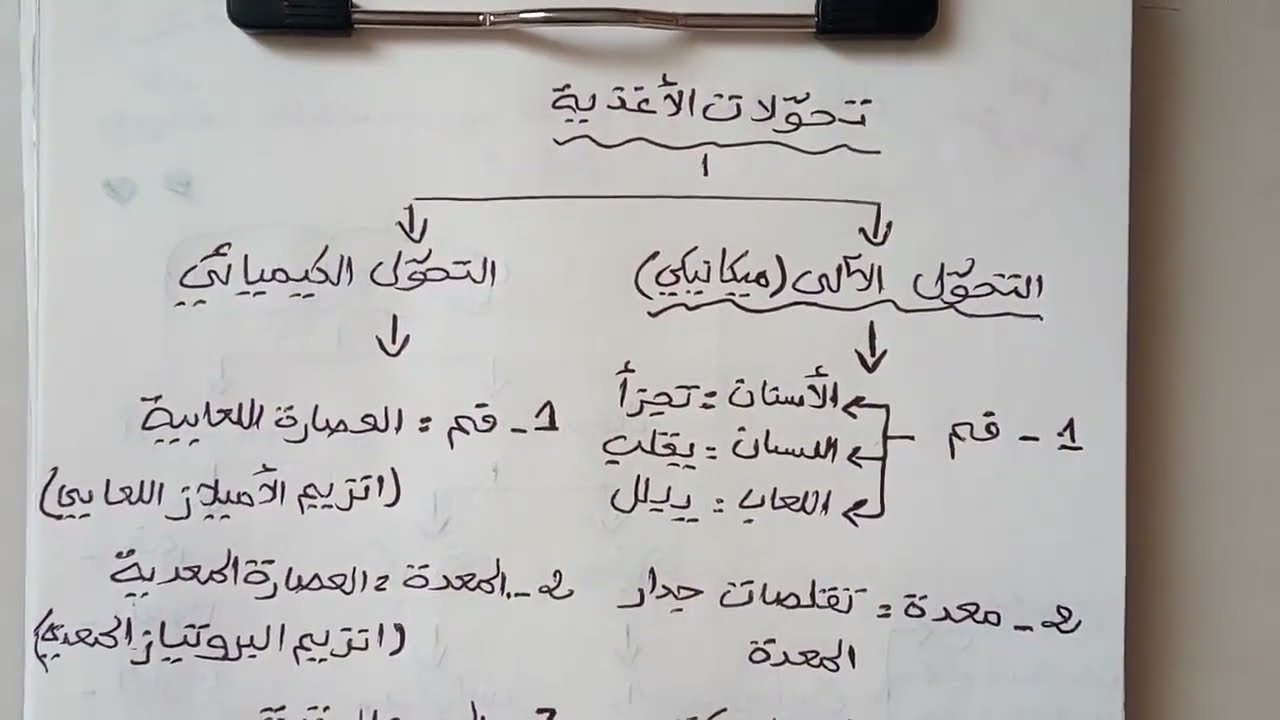 تحوّلات الأغذية
التحوّل الآلي (ميكانيكي)
1 - فم
الأسنان = تجزأ
اللسان = يقلب
اللعاب = يبلل
2 - معدة = تقلصات جدار
المعدة
التحوّل الكيميائي
1 - فم = العصارة اللعابية
(انزيم الأميلاز اللعابي)
2 - المعدة = العصارة المعدية
(انزيم البروتياز المعدي)